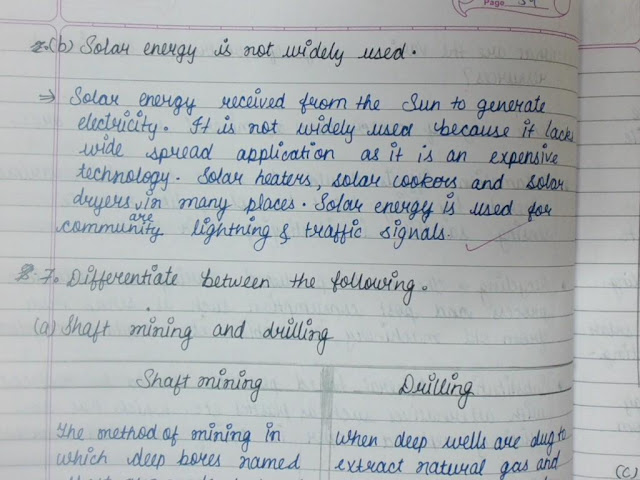 Page 39
(b) Solar energy is not widely used.
⇒ Solar energy received from the Sun to generate
electricity. It is not widely used because it lacks
wide spread application as it is an expensive
technology. Solar heaters, solar cookers and solar
dryers are in many places. Solar energy is used for
community lightning & traffic signals.
7. Differentiate between the following.
(a) Shaft mining and drilling
Shaft mining
The method of mining in
which deep bores named
Drilling
when deep wells are dug to
extract natural gas and
(C)